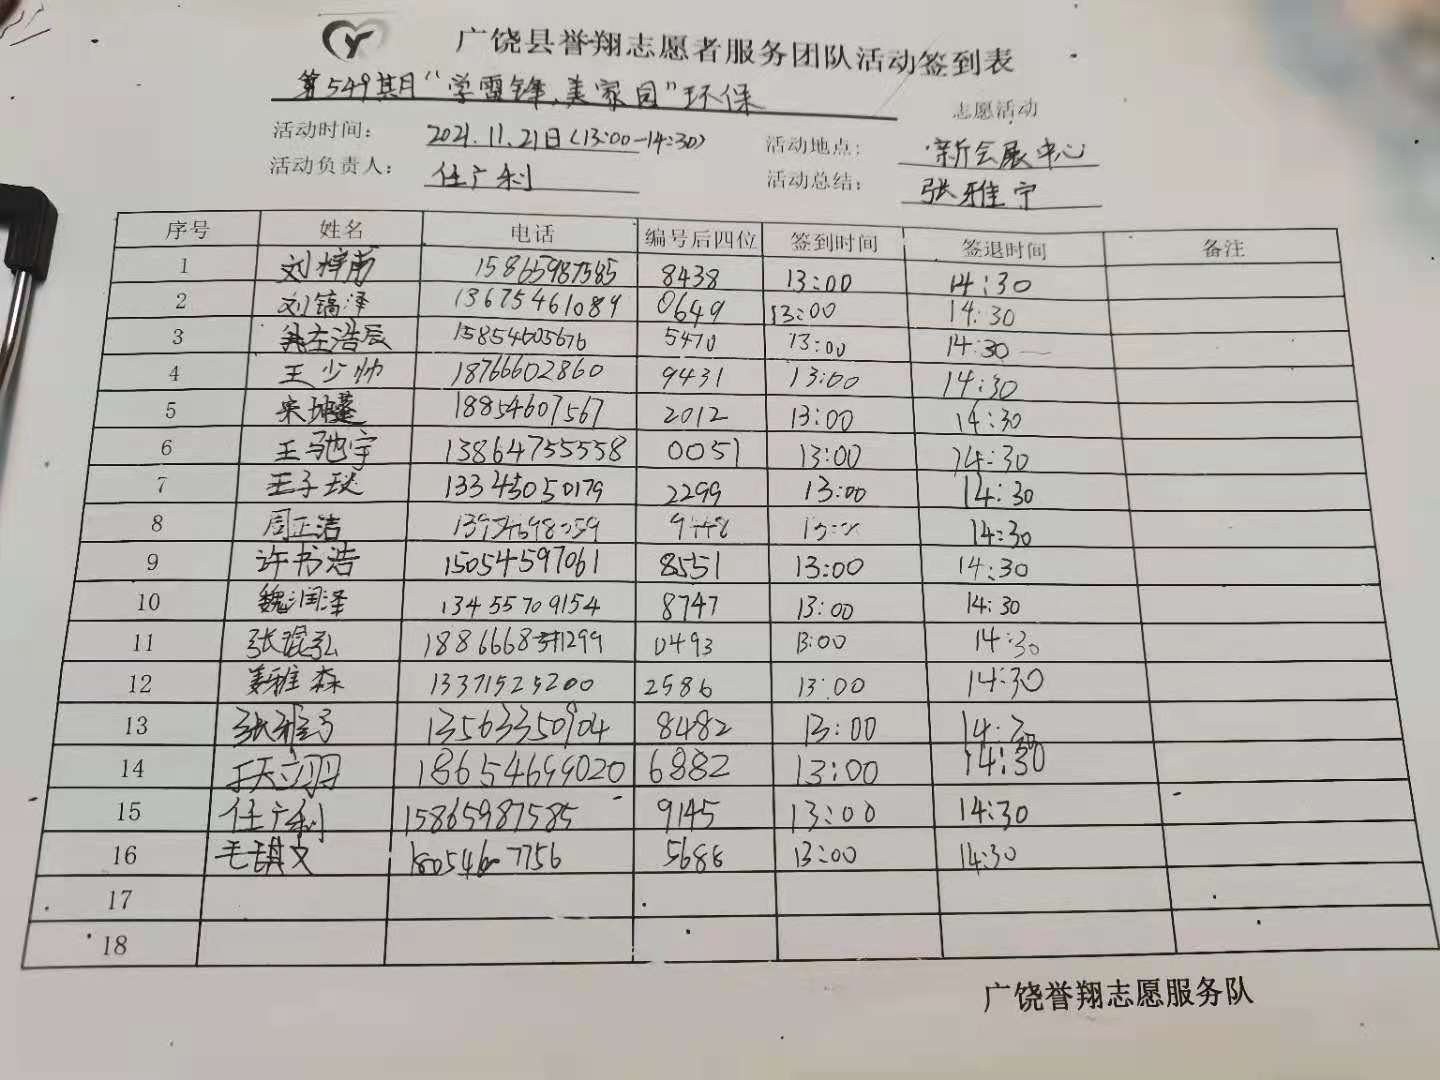 广饶县誉翔志愿者服务团队活动签到表
第549期"学雷锋、美家园"环保 志愿活动
活动时间: 2021.11.21日(13:00-14:30) 活动地点: 新会展中心
活动负责人: 任广利 活动总结: 张雅宁
序号 姓名 电话 编号后四位 签到时间 签退时间 备注
1 刘梓萳 15865987585 8438 13:00 14:30
2 刘镐泽 13675461089 0649 13:00 14:30
3 浩辰 15854605676 5470 13:00 14:30
4 王少帅 18766602860 9431 13:00 14:30
5 宋 18854607567 2012 13:00 14:30
6 王驰宇 13864755558 0051 13:00 14:30
7 王子琰 13345050179 2299 13:00 14:30
8 周正洁 14:30
9 许书浩 15054597061 8551 13:00 14:30
10 魏润泽 13455709154 8747 13:00 14:30
11 张琨弘 0493 13:00 14:30
12 姜雅森 13371525200 2586 13:00 14:30
13 张雅宁 13563350904 8482 13:00 14:30
14 于天立羽 18654699020 6882 13:00 14:30
15 任广利 15865987585 9145 13:00 14:30
16 毛琪文 18054607756 5688 13:00 14:30
17
18
广饶誉翔志愿服务队